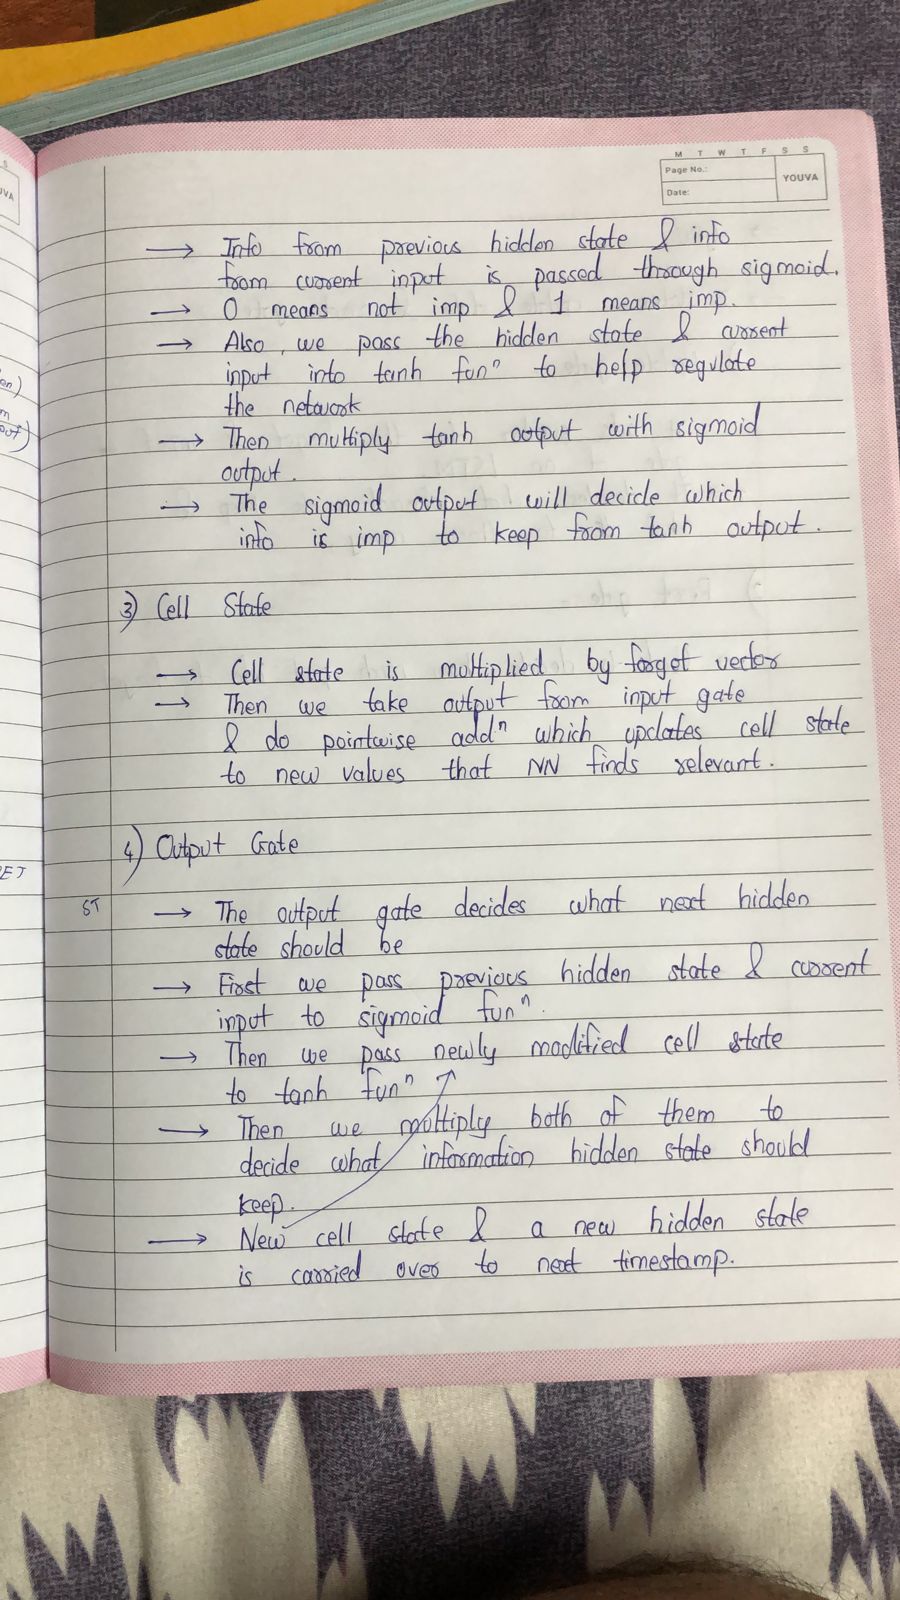 S
UVA
en)
m
out)
M T W T F S S
Page No.:
YOUVA
Date:
→ Info from previous hidden state & info
from current input is passed through sigmoid.
→ 0 means not imp & 1 means imp.
→ Also, we pass the hidden state & current
input into tanh funⁿ to help regulate
the network
→ Then multiply tanh output with sigmoid
output.
→ The sigmoid output will decide which
info is imp to keep from tanh output.
3) Cell State
→ Cell state is multiplied by forget vector
→ Then we take output from input gate
& do pointwise addⁿ which updates cell state
to new values that NN finds relevant.
4) Output Gate
ST
→ The output gate decides what next hidden
state should be
→ First we pass previous hidden state & current
input to sigmoid funⁿ.
→ Then we pass newly modified cell state
to tanh funⁿ
→ Then we multiply both of them to
decide what information hidden state should
keep.
→ New cell state & a new hidden state
is carried over to next timestamp.